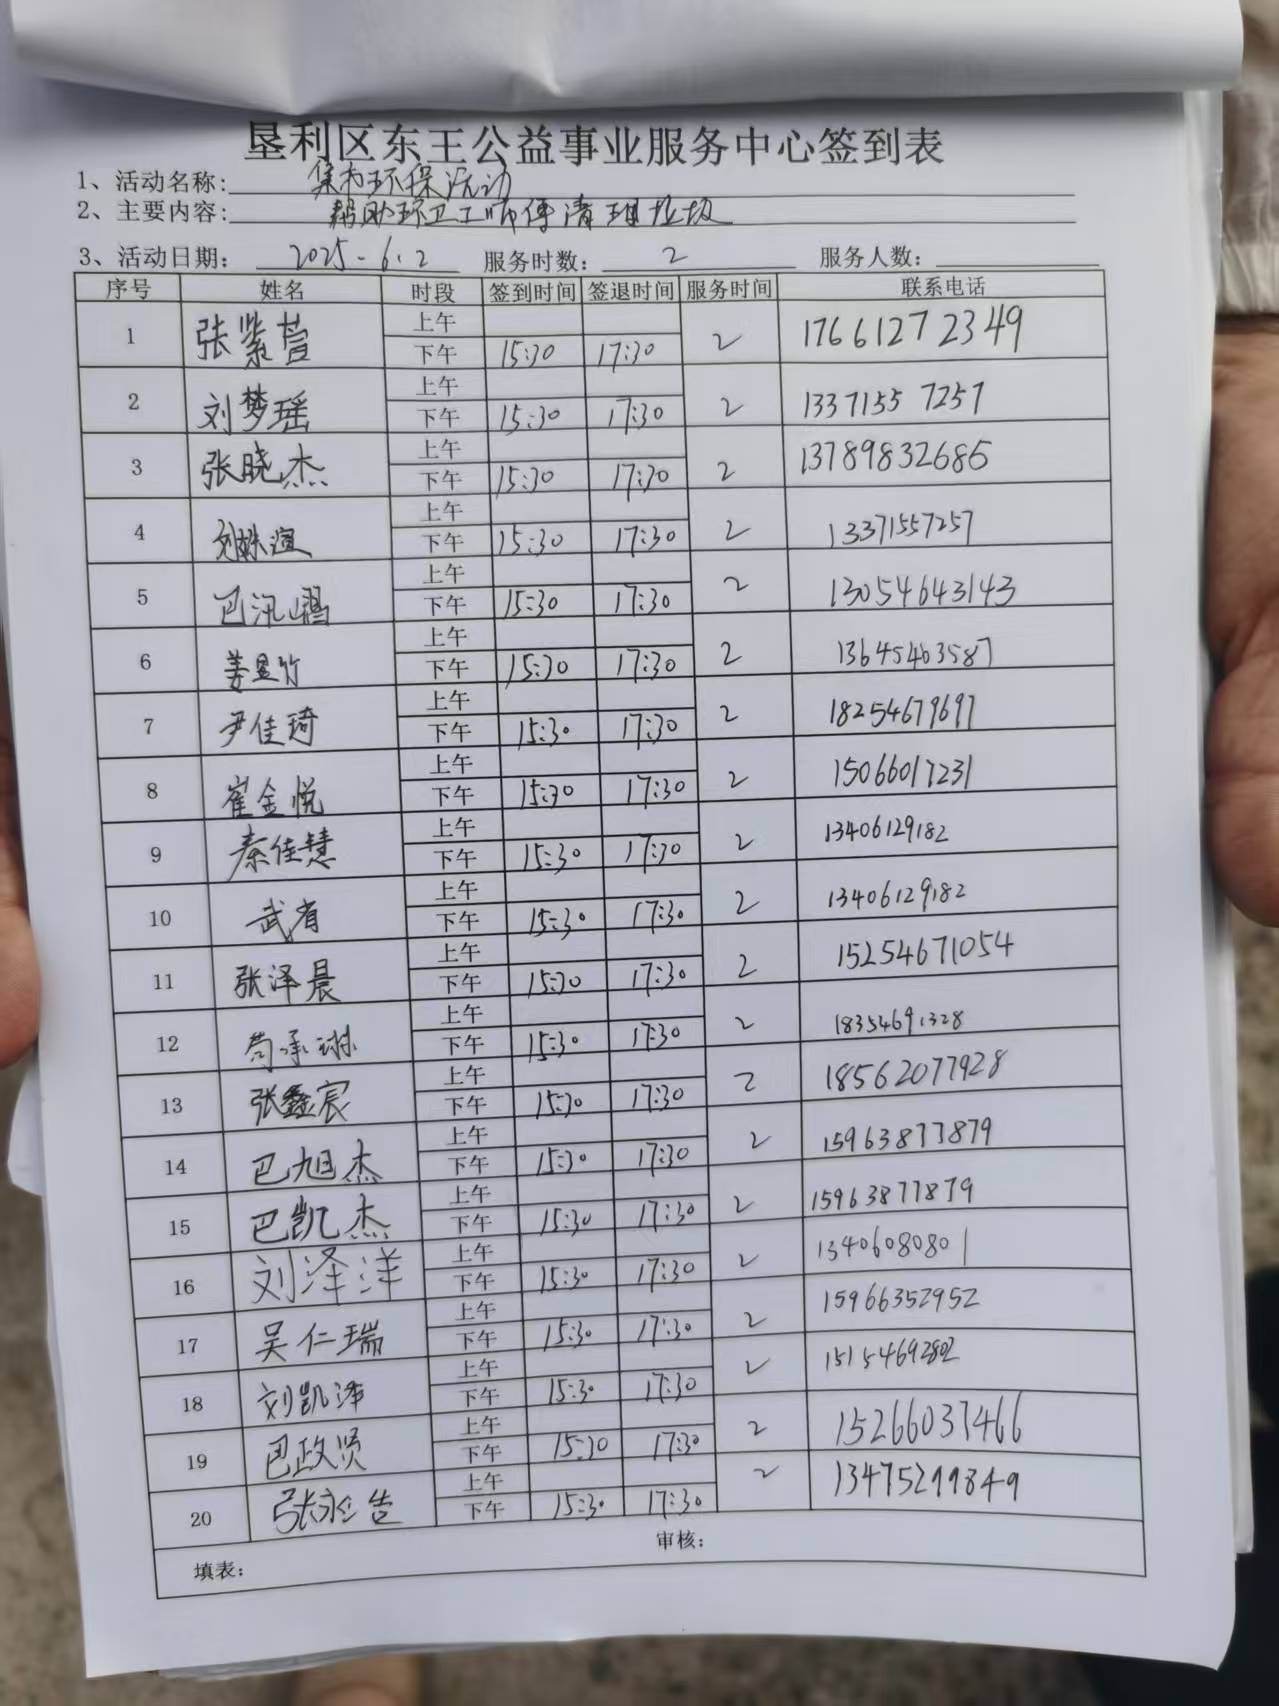 垦利区东王公益事业服务中心签到表
1、活动名称: 集市环保活动
2、主要内容: 帮助环卫工师傅清理垃圾
3、活动日期: 2025-6.2 服务时数: 2 服务人数:
序号 姓名 时段 签到时间 签退时间 服务时间 联系电话
1 张紫萱 上午 2 17661272349
下午 15:30 17:30
2 刘梦瑶 上午 2 13371557257
下午 15:30 17:30
3 张晓杰 上午 2 13789832685
下午 15:30 17:30
4 刘姝渲 上午 2 13371557257
下午 15:30 17:30
5 巴汛熠 上午 2 13054643143
下午 15:30 17:30
6 姜昱竹 上午 2 13645463587
下午 15:30 17:30
7 尹佳琦 上午 2 18254679697
下午 15:30 17:30
8 崔金悦 上午 2 15066017231
下午 15:30 17:30
9 秦佳慧 上午 2 13406129182
下午 15:30 17:30
10 武宥 上午 2 13406129182
下午 15:30 17:30
11 张泽晨 上午 2 15254671054
下午 15:30 17:30
12 苟承琳 上午 2 18354691328
下午 15:30 17:30
13 张鑫宸 上午 2 18562077928
下午 15:30 17:30
14 巴旭杰 上午 2 15963877879
下午 15:30 17:30
15 巴凯杰 上午 2 15963877879
下午 15:30 17:30
16 刘泽洋 上午 2 13406080801
下午 15:30 17:30
17 吴仁瑞 上午 2 15966352952
下午 15:30 17:30
18 刘凯泽 上午 2 15154692802
下午 15:30 17:30
19 巴政贤 上午 2 15266037466
下午 15:30 17:30
20 张永告 上午 2 13475299849
下午 15:30 17:30
填表: 审核: